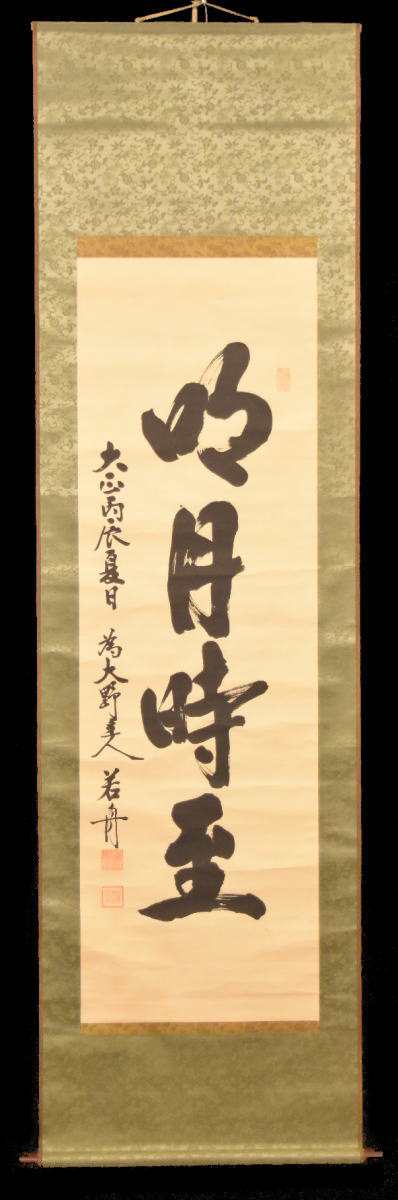 明月時至
大正丙辰夏日 為大野主人 若舟